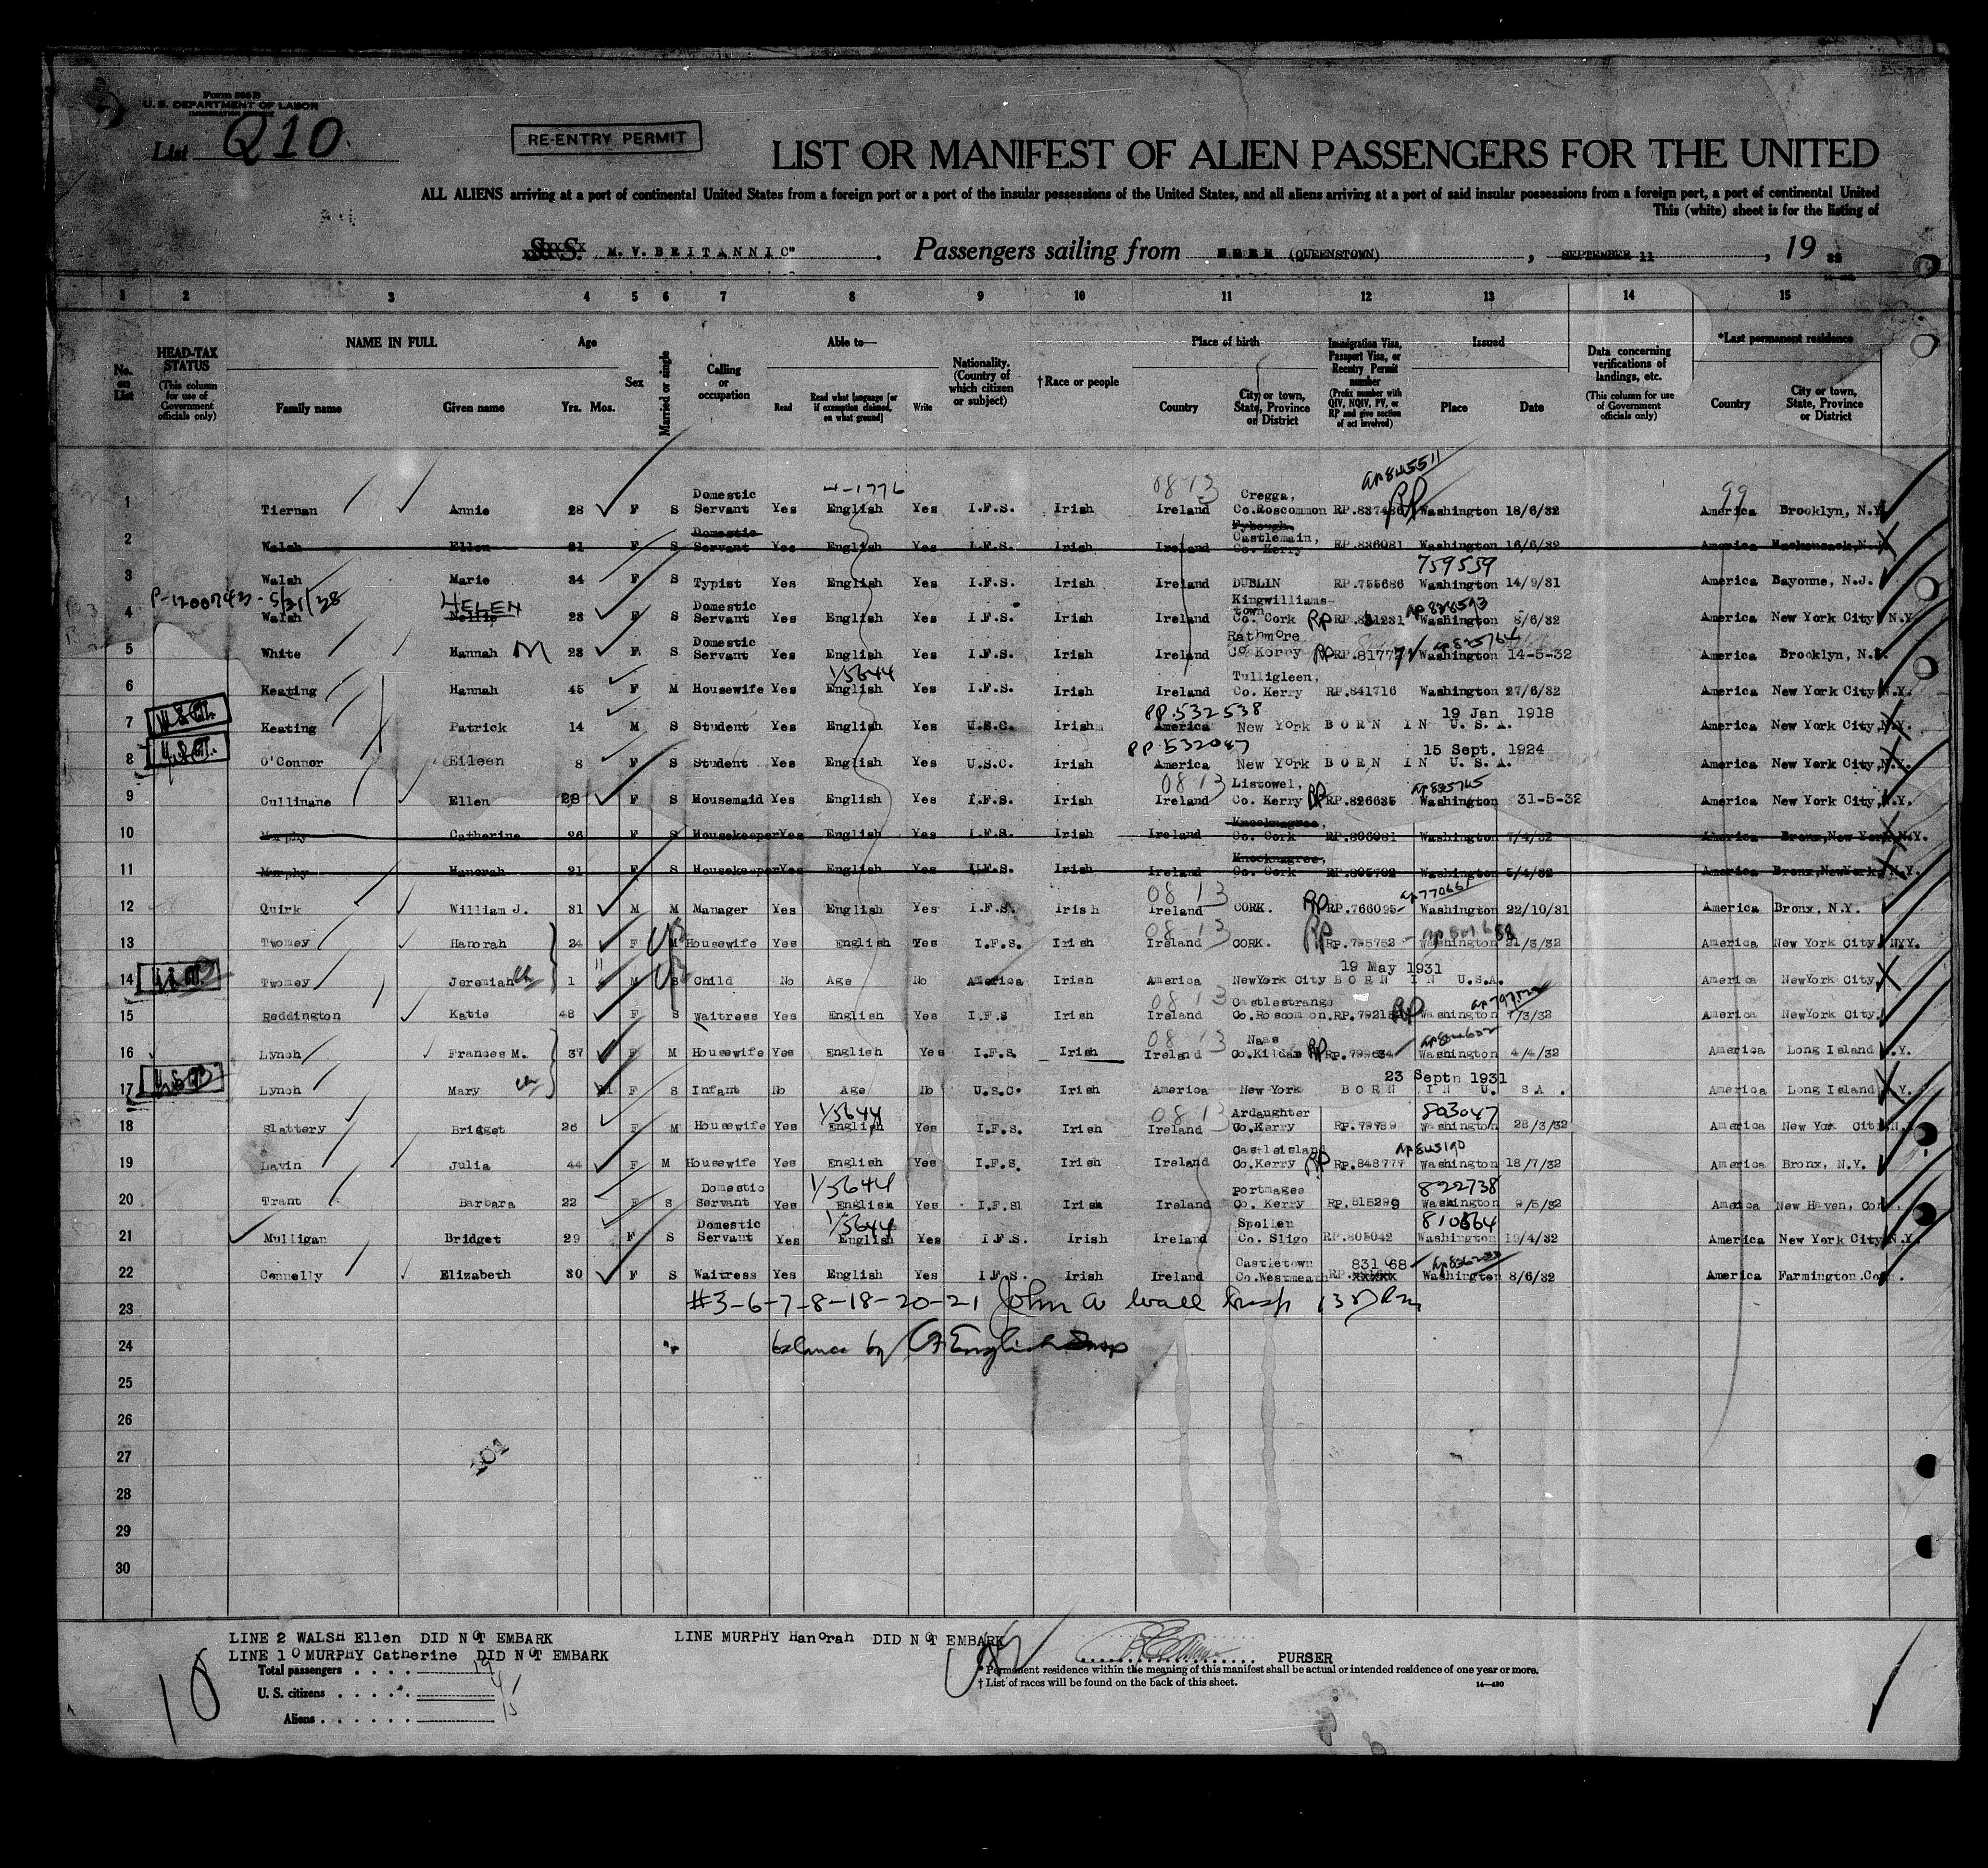 Form 500 B
U. S. DEPARTMENT OF LABOR
IMMIGRATION SERVICE
List Q10.
RE-ENTRY PERMIT
LIST OR MANIFEST OF ALIEN PASSENGERS FOR THE UNITED
ALL ALIENS arriving at a port of continental United States from a foreign port or a port of the insular possessions of the United States, and all aliens arriving at a port of said insular possessions from a foreign port, a port of continental United
This (white) sheet is for the listing of
S.S. M.V. BRITANNIC" . Passengers sailing from (QUEENSTOWN) , SEPTEMBER 11 , 19 32
1 2 3 4 5 6 7 8 9 10 11 12 13 14 15
No. on List
HEAD-TAX STATUS (This column for use of Government officials only)
NAME IN FULL Family name Given name
Age Yrs. Mos.
Sex
Married or single
Calling or occupation
Able to— Read Read what language [or if exemption claimed, on what ground] Write
Nationality. (Country of which citizen or subject)
†Race or people
Place of birth Country City or town, State, Province or District
Immigration Visa, Passport Visa, or Reentry Permit number (Prefix number with QIV, NQIV, PV, or RP and give section of act involved)
Issued Place Date
Data concerning verifications of landings, etc. (This column for use of Government officials only)
*Last permanent residence Country City or town, State, Province or District
1 Tiernan Annie 28 F S Domestic Servant Yes 4-1776 English Yes I.F.S. Irish 0813 Ireland Cregga, Co.Roscommon RP Washington 18/6/32 99 America Brooklyn, N.Y.
2 Walsh Ellen 21 F S Domestic Servant Yes English Yes I.F.S. Irish Ireland Castlemain, Co. Kerry RP.836081 Washington 16/6/32 America Hackensack,N.J.
3 Walsh Marie 34 F S Typist Yes English Yes I.F.S. Irish Ireland DUBLIN RP.755686 759559 Washington 14/9/31 America Bayonne, N.J.
P-1200743-5/31/38
4 Walsh Nellie HELEN 23 F S Domestic Servant Yes English Yes I.F.S. Irish Ireland Kingwilliams-town Co. Cork RP Washington 8/6/32 America New York City N.Y.
5 White Hannah M 23 F S Domestic Servant Yes English Yes I.F.S. Irish Ireland Rathmore Co Kerry RP Washington 14-5-32 America Brooklyn, N.Y.
6 Keating Hannah 45 F M Housewife Yes 1/5644 English Yes I.F.S. Irish Ireland Tulligleen, Co. Kerry RP.841716 Washington 27/6/32 America New York City N.Y.
7 Keating Patrick 14 M S Student Yes English Yes U.S.C. Irish PP.532538 America New York BORN IN U.S.A. 19 Jan 1918 America New York City, N.Y.
8 O'Connor Eileen 8 F S Student Yes English Yes U.S.C. Irish PP.532047 America New York BORN IN U.S.A. 15 Sept. 1924 America New York City, N.Y.
9 Cullinane Ellen 28 F S Housemaid Yes English Yes I.F.S. Irish 0813 Ireland Listowel, Co. Kerry RP RP.826635 Washington 31-5-32 America New York City, N.Y.
10 Murphy Catherine 26 F S Housekeeper Yes English Yes I.F.S. Irish Ireland Knocknagree, Co. Cork Washington 7/4/32 America Bronx, New York, N.Y.
11 Murphy Hanorah 21 F S Housekeeper Yes English Yes I.F.S. Irish Ireland Knocknagree, Co. Cork Washington 5/4/32 America Bronx,NewYork, N.Y.
12 Quirk William J. 31 M M Manager Yes English Yes I.F.S. Irish 0813 Ireland CORK. RP RP.766095 Washington 22/10/31 America Bronx, N.Y.
13 Twomey Hanorah 24 F M Housewife Yes English Yes I.F.S. Irish 0813 Ireland CORK. RP RP.795752 Washington 21/3/32 America New York City. NYY.
14 Twomey Jeremiah 1 M S Child No Age No America Irish America NewYork City BORN IN U.S.A. 19 May 1931 America NewYork City
15 Reddington Katie 48 F S Waitress Yes English Yes I.F.S Irish 0813 Ireland Castlestrange Co.Roscommon. RP Washington 7/3/32 America NewYork City.
16 Lynch Frances M. 37 F M Housewife Yes English Yes I.F.S. Irish 0813 Ireland Naas Co.Kildare RP RP.799634 Washington 4/4/32 America Long Island N.Y.
17 Lynch Mary 11 F S Infant No Age No U.S.C. Irish America New York BORN IN U. SA. 23 Septn 1931 America Long Island N.Y.
18 Slattery Bridget 26 F M Housewife Yes 1/5644 English Yes I.F.S. Irish 0813 Ireland Ardaughter Co.Kerry RP.79789 803047 Washington 28/3/32 America New York City N.Y.
19 Lavin Julia 44 F M Housewife Yes English Yes I.F.S. Irish Ireland Castleisland Co.Kerry RP RP.848777 Washington 18/7/32 America Bronx, N.Y.
20 Trant Barbara 22 F S Domestic Servant Yes 1/5644 English Yes I.F.S1 Irish Ireland Portmagee Co. Kerry RP.815299 822738 Washington 9/5/32 America New Haven, Con.
21 Mulligan Bridget 29 F S Domestic Servant Yes 1/5644 English Yes I.F.S. Irish Ireland Co. Sligo RP.805042 810564 Washington 19/4/32 America New York City N.Y.
22 Connelly Elizabeth 30 F S Waitress Yes English Yes I.F.S. Irish Ireland Castletown Co.Westmeath RP. 831 68 Washington 8/6/32 America Farmington.Con.
23 #3-6-7-8-18-20-21 John A Wall Insp
24 balance by English Insp
25
26
27
28
29
30
LINE 2 WALSH Ellen DID NOT EMBARK
LINE 10 MURPHY Catherine DID NOT EMBARK
LINE MURPHY Hanorah DID NOT EMBARK
PURSER
Total passengers . . . . 19
U. S. citizens . . . . . 4
Aliens . . . . . . 15
* Permanent residence within the meaning of this manifest shall be actual or intended residence of one year or more.
† List of races will be found on the back of this sheet.
14—480